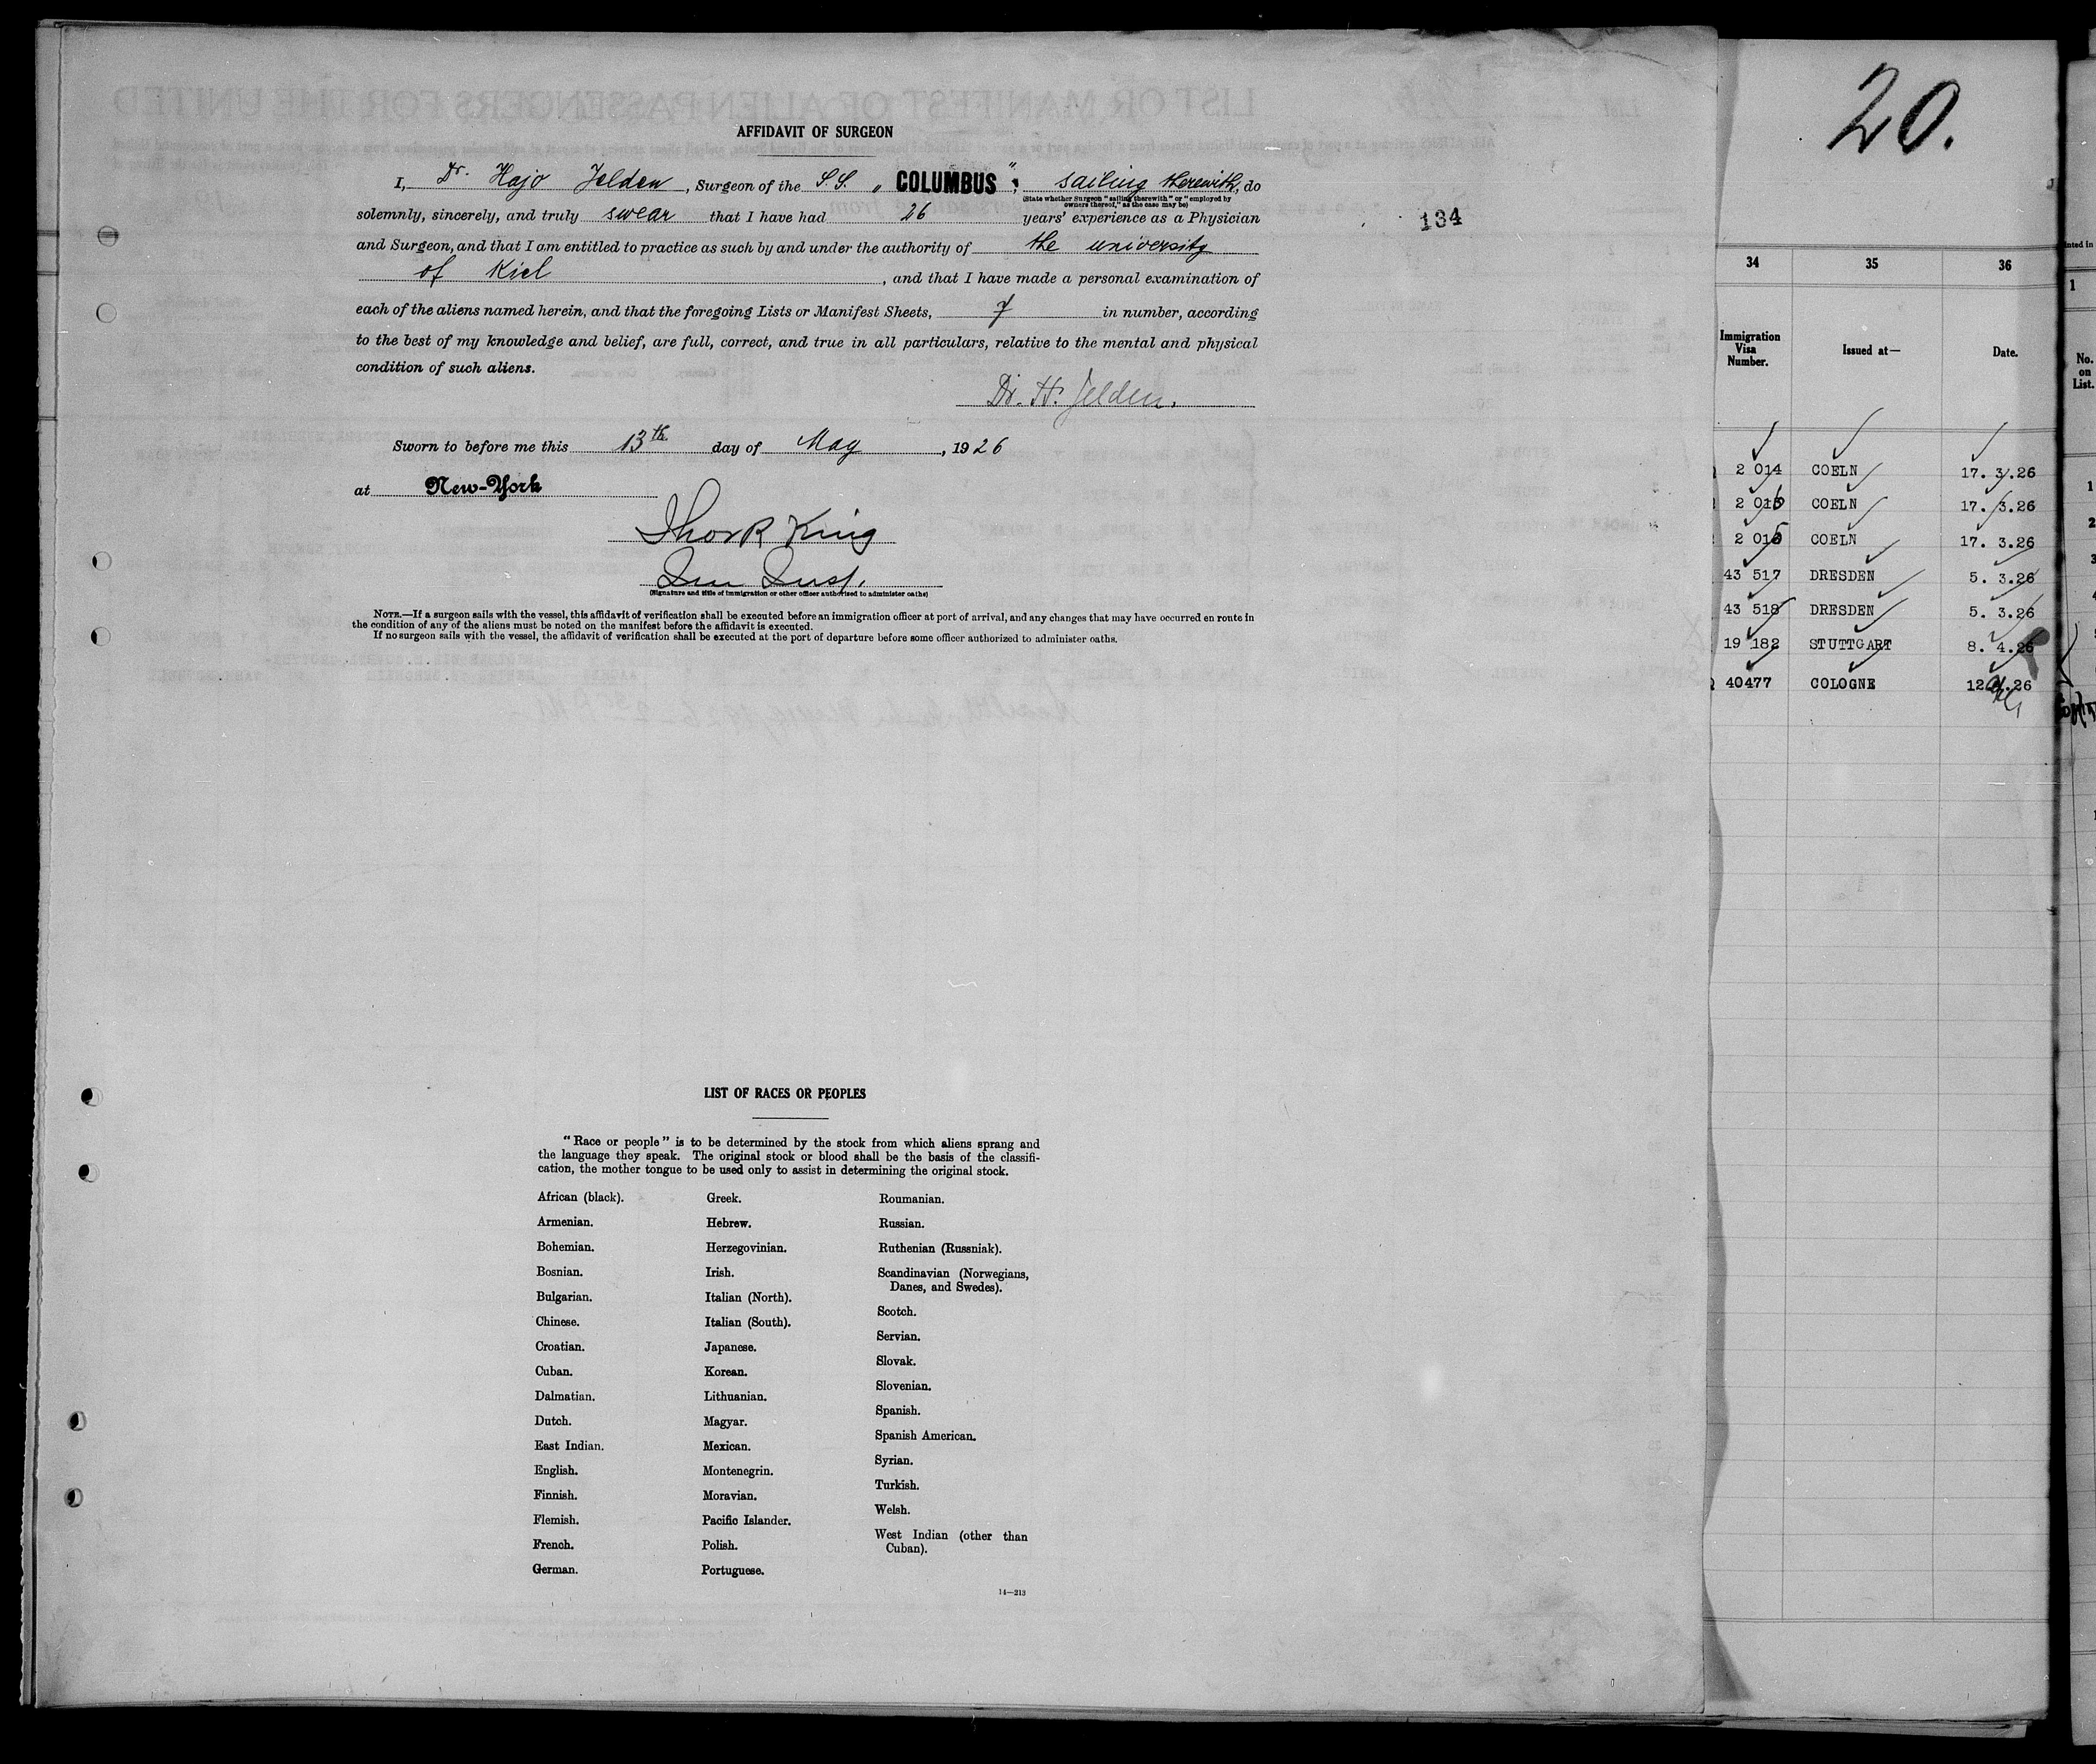 AFFIDAVIT OF SURGEON
I, Dr. Hajo Jelden, Surgeon of the S.S. „COLUMBUS", sailing therewith, do
(State whether Surgeon "sailing therewith" or "employed by
owners thereof," as the case may be)
solemnly, sincerely, and truly swear that I have had 26 years' experience as a Physician
and Surgeon, and that I am entitled to practice as such by and under the authority of the university
of Kiel, and that I have made a personal examination of
each of the aliens named herein, and that the foregoing Lists or Manifest Sheets, 7 in number, according
to the best of my knowledge and belief, are full, correct, and true in all particulars, relative to the mental and physical
condition of such aliens.
Dr. H. Jelden.
Sworn to before me this 13th day of May, 1926
at New-York
Thos R King
(Signature and title of immigration or other officer authorized to administer oaths)
NOTE.—If a surgeon sails with the vessel, this affidavit of verification shall be executed before an immigration officer at port of arrival, and any changes that may have occurred en route in
the condition of any of the aliens must be noted on the manifest before the affidavit is executed.
If no surgeon sails with the vessel, the affidavit of verification shall be executed at the port of departure before some officer authorized to administer oaths.
134
LIST OF RACES OR PEOPLES
"Race or people" is to be determined by the stock from which aliens sprang and
the language they speak. The original stock or blood shall be the basis of the classifi-
cation, the mother tongue to be used only to assist in determining the original stock.
African (black).
Armenian.
Bohemian.
Bosnian.
Bulgarian.
Chinese.
Croatian.
Cuban.
Dalmatian.
Dutch.
East Indian.
English.
Finnish.
Flemish.
French.
German.
Greek.
Hebrew.
Herzegovinian.
Irish.
Italian (North).
Italian (South).
Japanese.
Korean.
Lithuanian.
Magyar.
Mexican.
Montenegrin.
Moravian.
Pacific Islander.
Polish.
Portuguese.
Roumanian.
Russian.
Ruthenian (Russniak).
Scandinavian (Norwegians,
Danes, and Swedes).
Scotch.
Servian.
Slovak.
Slovenian.
Spanish.
Spanish American.
Syrian.
Turkish.
Welsh.
West Indian (other than
Cuban).
14—213
20.
34 35 36
Immigration
Visa
Number.
Issued at—
Date.
2 014 COELN 17. 3.26
COELN 17. 3.26
COELN 17. 3.26
43 517 DRESDEN 5. 3.26
43 518 DRESDEN 5. 3.26
19 182 STUTTGART 8. 4.26
40477 COLOGNE
No.
on
List.
1
1
2
3